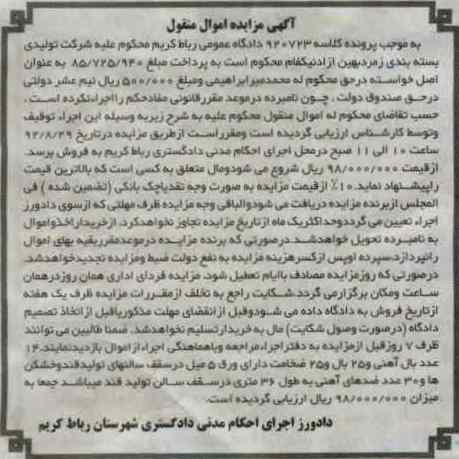 آگهی مزایده اموال منقول
به موجب پرونده کلاسه ۹۲۰۷۲۳ دادگاه عمومی رباط کریم محکوم علیه شرکت تولیدی
بسته بندی زمرد بهین ارادنیکفام محکوم است به پرداخت مبلغ ۸۵/۷۲۵/۹۴۰ به عنوان
اصل خواسته در حق محکوم له محمد میرابراهیمی ومبلغ ۵۰۰/۰۰۰ ریال نیم عشر دولتی
در حق صندوق دولت ، چون نامبرده در موعد مقرر قانونی مفاد حکم را اجرا نکرده است .
حسب تقاضای محکوم له اموال منقول محکوم علیه به شرح زیر به وسیله این اجراء توقیف
وتوسط کارشناس ارزیابی گردیده است ومقرر است از طریق مزایده در تاریخ ۹۲/۸/۲۹
ساعت ۱۰ الی ۱۱ صبح در محل اجرای احکام مدنی دادگستری رباط کریم به فروش برسد.
از قیمت ۹۸/۰۰۰/۰۰۰ ریال شروع می شود ومال متعلق به کسی است که بالاترین قیمت
را پیشنهاد نماید.۱۰٪ از قیمت مزایده به صورت وجه نقد یا چک بانکی (تضمین شده ) فی
المجلس از برنده مزایده دریافت می شود والباقی وجه مزایده ظرف مهلتی که از سوی دادورز
اجراء تعیین می گردد وحداکثر یک ماه از تاریخ مزایده تجاوز نخواهد کرد، از خریدار اخذ واموال
به نامبرده تحویل خواهد شد.در صورتی که برنده مزایده در موعد مقرر بقیه بهای اموال
را نپردازد،سپرده او پس از کسر هزینه مزایده به نفع دولت ضبط ومزایده تجدید خواهد شد.
در صورتی که روز مزایده مصادف با ایام تعطیل شود، مزایده فردای اداری همان روز در همان
ساعت ومکان برگزار می گردد.شکایت راجع به تخلف از مقررات مزایده ظرف یک هفته
از تاریخ فروش به دادگاه داده می شود وقبل از انقضای مهلت مذکور یا قبل از اتخاذ تصمیم
دادگاه (در صورت وصول شکایت) مال به خریدار تسلیم نخواهد شد. ضمنا طالبین می توانند
ظرف ۷ روز قبل از مزایده به دفتر اجراء مراجعه وبا هماهنگی اجراء از اموال بازدید نمایند.۱۴
عدد بال آهنی و۲۵ بال و۲۵ ضخامت دارای ورق ۵ میل در سقف سالنهای تولید قند وخشکن
ها و۳۰ عدد ضدهای آهنی به طول ۳۶ متری در سقف سالن تولید قند میباشد جمعا به
میزان ۹۸/۰۰۰/۰۰۰ ریال ارزیابی گردیده است.
دادورز اجرای احکام مدنی دادگستری شهرستان رباط کریم